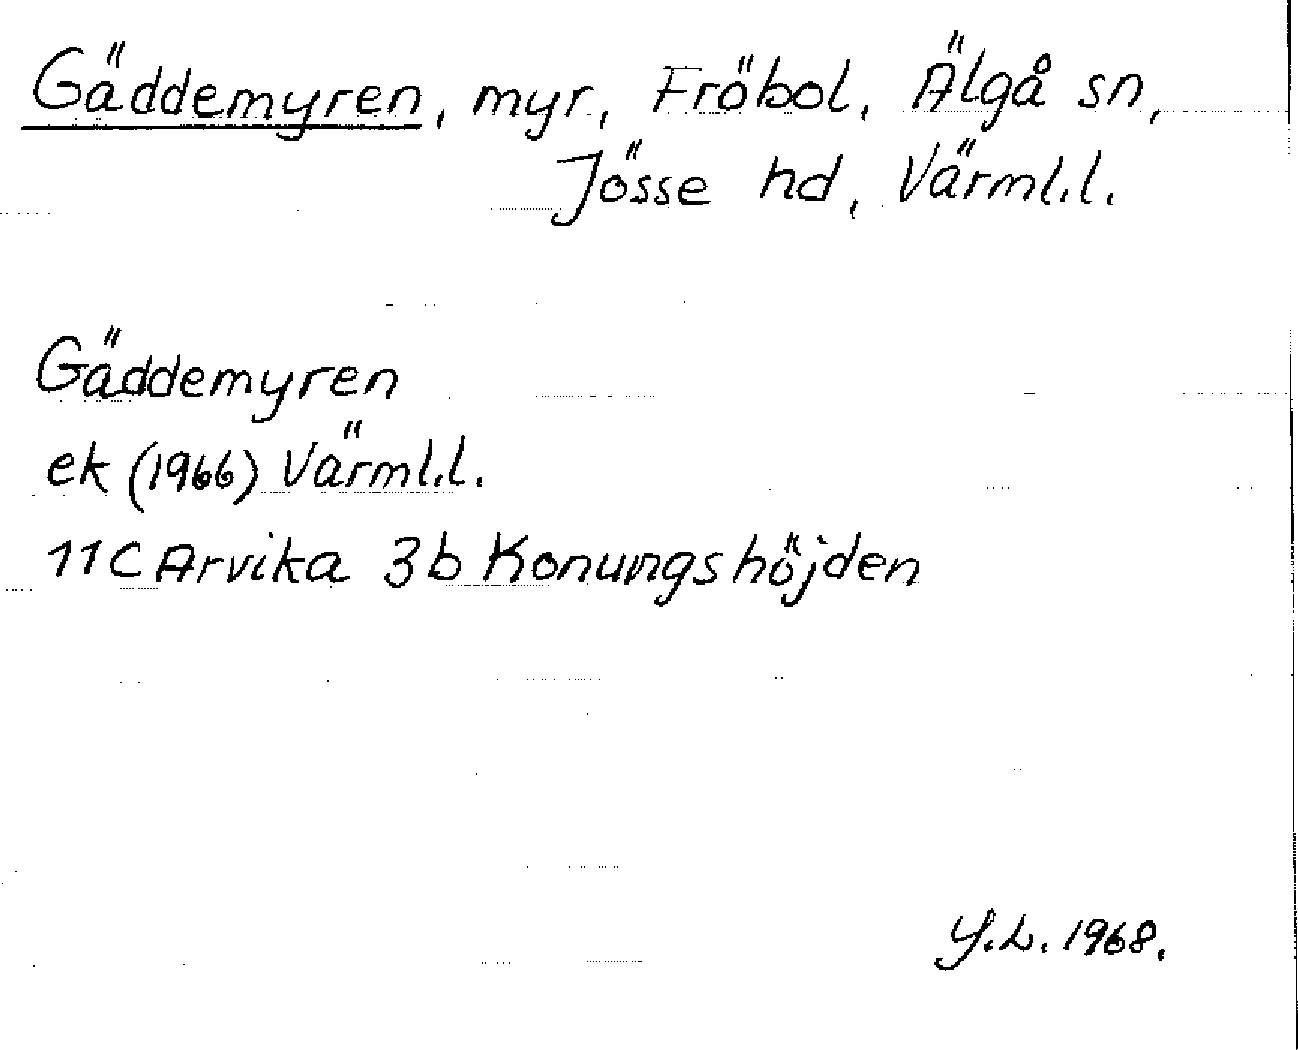 Gäddemyren, myr, Fröbol, Älgå sn,
Jösse hd, Värml.l.
Gäddemyren
ek (1966) Värml.l.
11C Arvika 3b Konungshöjden
Y.L. 1968.